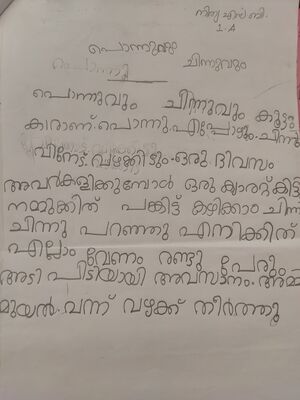 നിത്യ എസ് ബി.
1.A
പൊന്നുവും
ചിന്നുവും
പൊന്നുവും ചിന്നുവും കൂട്ടു
കാരാണ്. പൊന്നു. എപ്പോഴും. ചിന്നു
വിനേട് വഴക്കിടും. ഒരു ദിവസം
അവർകളിക്കുമ്പോൾ ഒരു ക്യാരറ്റ് കിട്ടി
നമുക്കിത് പങ്കിട്ട് കഴിക്കാം ചിന്ന
ചിന്നു പറഞ്ഞു എന്നിക്കിത്
എല്ലാം വേണം രണ്ടു പേരും
അടി പിടിയായി അവസ്സനം. അമ്മ
മുയൽ. വന്ന് വഴക്ക് തീർത്തു